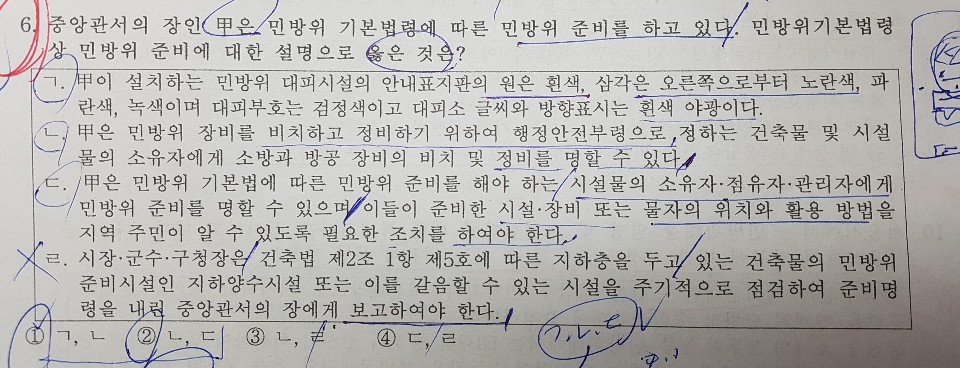 6. 중앙관서의 장인 甲은 민방위 기본법령에 따른 민방위 준비를 하고 있다. 민방위기본법령
상 민방위 준비에 대한 설명으로 옳은 것은?
ㄱ. 甲이 설치하는 민방위 대피시설의 안내표지판의 원은 흰색, 삼각은 오른쪽으로부터 노란색, 파
란색, 녹색이며 대피부호는 검정색이고 대피소 글씨와 방향표시는 흰색 야광이다.
ㄴ. 甲은 민방위 장비를 비치하고 정비하기 위하여 행정안전부령으로 정하는 건축물 및 시설
물의 소유자에게 소방과 방공 장비의 비치 및 정비를 명할 수 있다.
ㄷ. 甲은 민방위 기본법에 따른 민방위 준비를 해야 하는 시설물의 소유자·점유자·관리자에게
민방위 준비를 명할 수 있으며 이들이 준비한 시설·장비 또는 물자의 위치와 활용 방법을
지역 주민이 알 수 있도록 필요한 조치를 하여야 한다.
ㄹ. 시장·군수·구청장은 건축법 제2조 1항 제5호에 따른 지하층을 두고 있는 건축물의 민방위
준비시설인 지하양수시설 또는 이를 갈음할 수 있는 시설을 주기적으로 점검하여 준비명
령을 내린 중앙관서의 장에게 보고하여야 한다.
① ㄱ, ㄴ ② ㄴ, ㄷ ③ ㄴ, ㄹ ④ ㄷ, ㄹ ㄱ, ㄴ, ㄷ